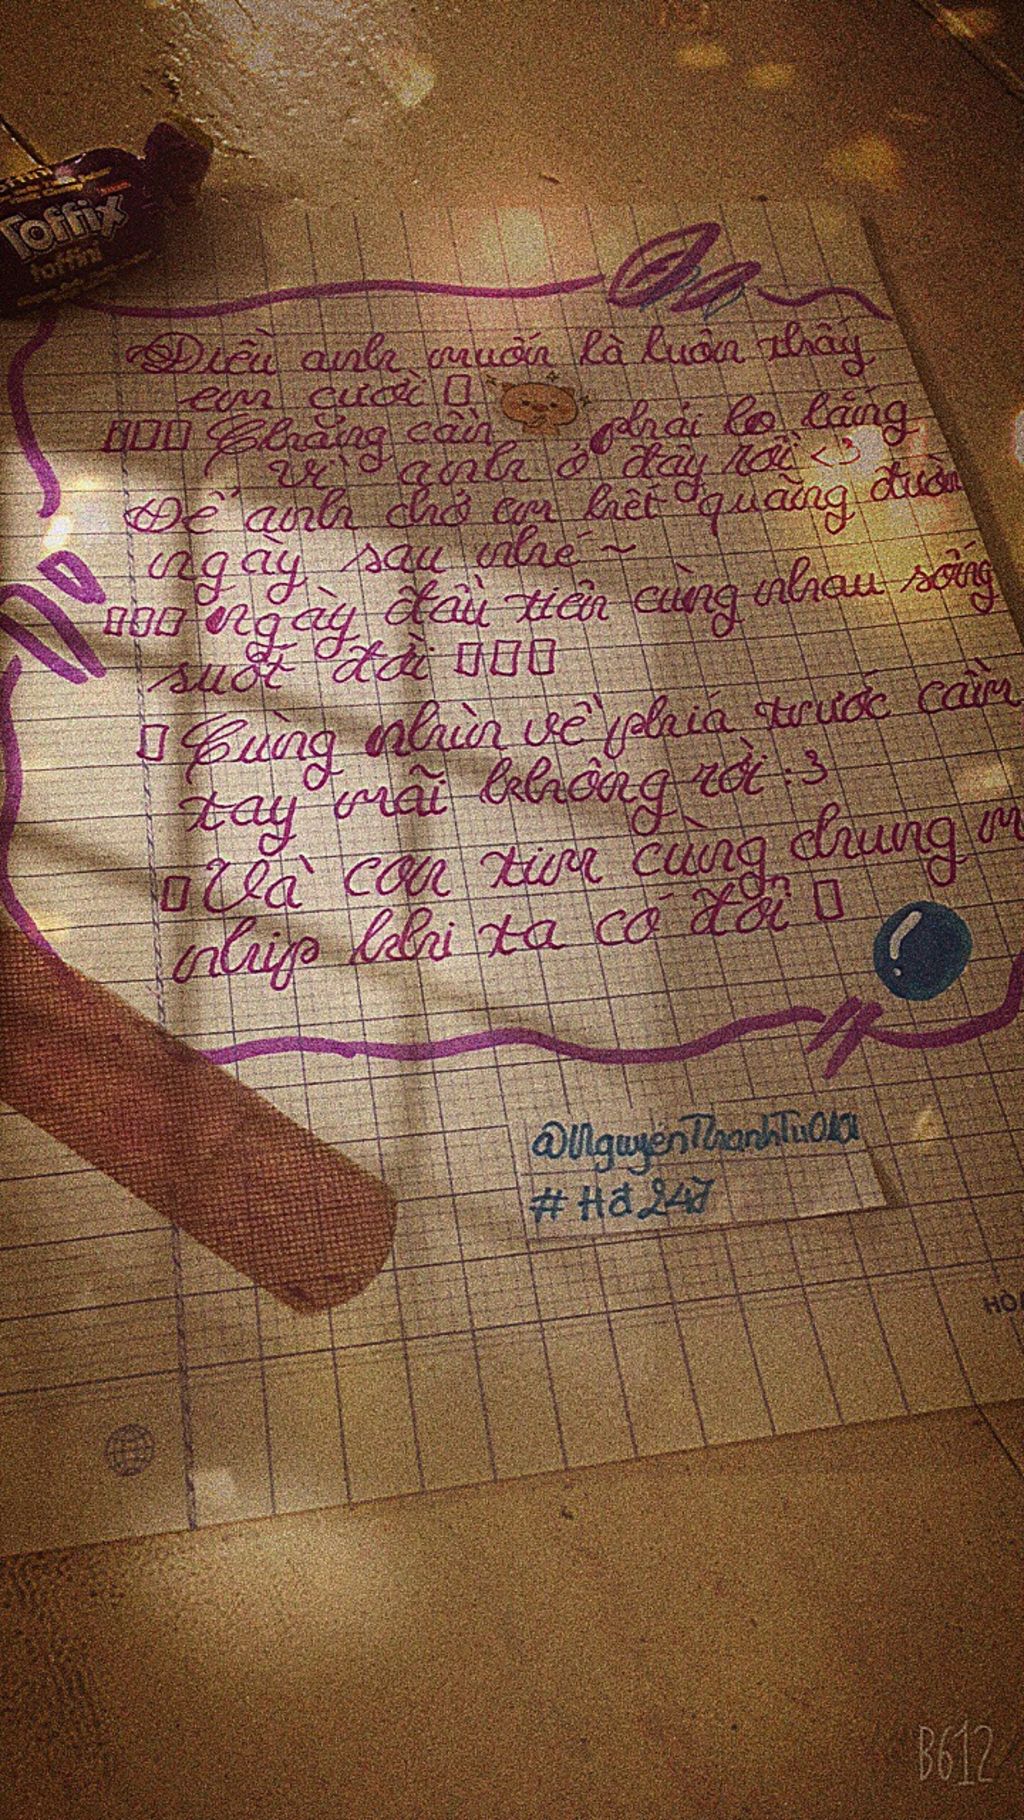 Toffix
toffini
Điều anh muốn là luôn thấy
em cười □
□□□ Chẳng cần phải lo lắng
vì anh ở đây rồi <3
Để anh chở em hết quãng đườn
ngày sau nhé ~
□□□ ngày đầu tiên cùng nhau sống
suốt đời □□□
□ Cùng nhìn về phía trước cầm
tay mãi không rời :3
□ Và con tim cùng chung m
nhịp khi ta có đôi □
@NguyenThanhTu
#Hđ247
HÒA
B612